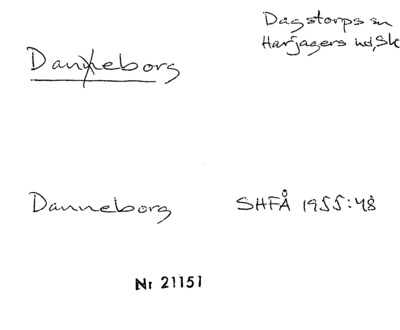 Dagstorps sn
Harjagers hd, Sk
Danneborg
Danneborg SHFÅ 1955:48
Nr 21151